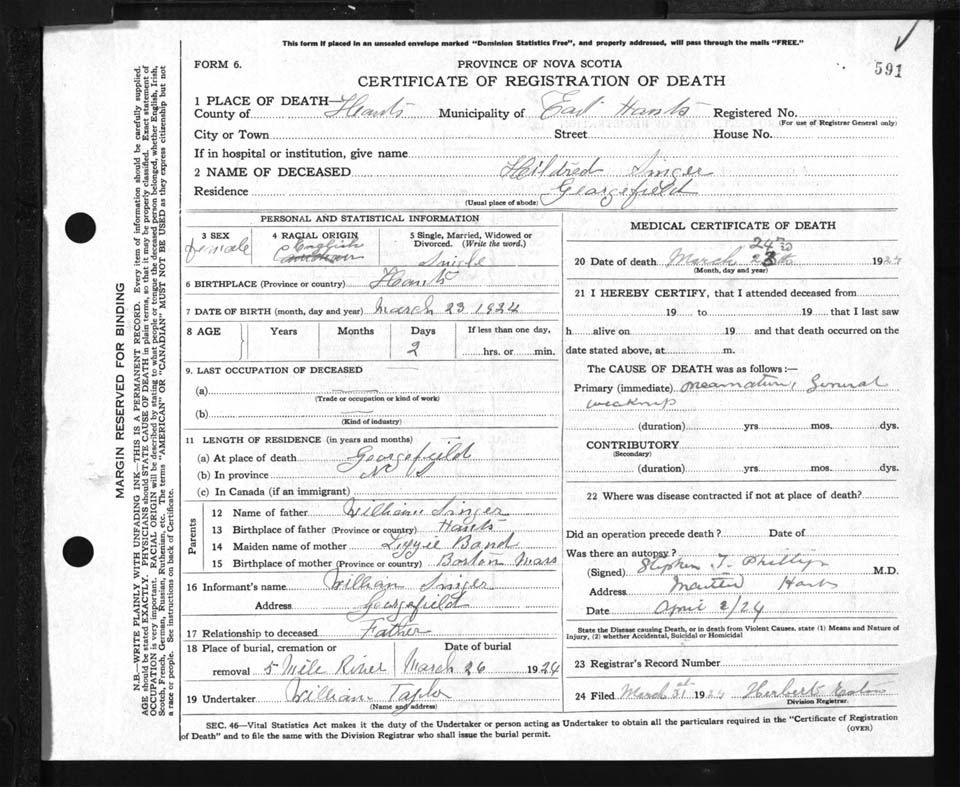 This form if placed in an unsealed envelope marked "Dominion Statistics Free", and properly addressed, will pass through the mails "FREE."
FORM 6.
PROVINCE OF NOVA SCOTIA
591
CERTIFICATE OF REGISTRATION OF DEATH
1 PLACE OF DEATH—
County of Hants Municipality of East Hants Registered No.
(For use of Registrar General only)
City or Town Street House No.
If in hospital or institution, give name
2 NAME OF DECEASED Hildred Singer
Residence Georgefield
(Usual place of abode)
PERSONAL AND STATISTICAL INFORMATION
3 SEX female
4 RACIAL ORIGIN English
5 Single, Married, Widowed or Divorced. (Write the word.) Single
6 BIRTHPLACE (Province or country) Hants
7 DATE OF BIRTH (month, day and year) March 23 1924
8 AGE Years Months Days If less than one day,
2 hrs. or min.
9. LAST OCCUPATION OF DECEASED
(a)
(Trade or occupation or kind of work)
(b)
(Kind of industry)
11 LENGTH OF RESIDENCE (in years and months)
(a) At place of death Georgefield
(b) In province N S
(c) In Canada (if an immigrant)
Parents
12 Name of father William Singer
13 Birthplace of father (Province or country) Hants
14 Maiden name of mother Lizzie Bond
15 Birthplace of mother (Province or country) Boston Mass
16 Informant's name William Singer
Address Georgefield
17 Relationship to deceased Father
18 Place of burial, cremation or removal 5 Mile River
Date of burial March 26 1924
19 Undertaker William Taylor
(Name and address)
MEDICAL CERTIFICATE OF DEATH
20 Date of death March 24 1924
(Month, day and year)
21 I HEREBY CERTIFY, that I attended deceased from
19 to 19 that I last saw
h alive on 19 and that death occurred on the
date stated above, at m.
The CAUSE OF DEATH was as follows:—
Primary (immediate) General
(duration) yrs. mos. dys.
CONTRIBUTORY
(Secondary)
(duration) yrs. mos. dys.
22 Where was disease contracted if not at place of death?
Did an operation precede death? Date of
Was there an autopsy?
(Signed) Stephen T. Phillips M.D.
Address Hants
Date April 2/24
State the Disease causing Death, or in death from Violent Causes, state (1) Means and Nature of Injury, (2) whether Accidental, Suicidal or Homicidal
23 Registrar's Record Number
24 Filed March 31st 1924 Herbert Eaton
Division Registrar.
SEC. 46—Vital Statistics Act makes it the duty of the Undertaker or person acting as Undertaker to obtain all the particulars required in the "Certificate of Registration
of Death" and to file the same with the Division Registrar who shall issue the burial permit.
(OVER)
MARGIN RESERVED FOR BINDING
N.B.—WRITE PLAINLY WITH UNFADING INK—THIS IS A PERMANENT RECORD. Every item of information should be carefully supplied.
AGE should be stated EXACTLY. PHYSICIANS should STATE CAUSE OF DEATH in plain terms, so that it may be properly classified. Exact statement of
OCCUPATION is very important. RACIAL ORIGIN will be described by stating to what people or tongue the deceased person belonged, whether English, Irish,
Scotch, French, German, Russian, Ruthenian, etc. The terms "AMERICAN" OR "CANADIAN" MUST NOT BE USED as they express citizenship but not
a race or people. See instructions on back of Certificate.